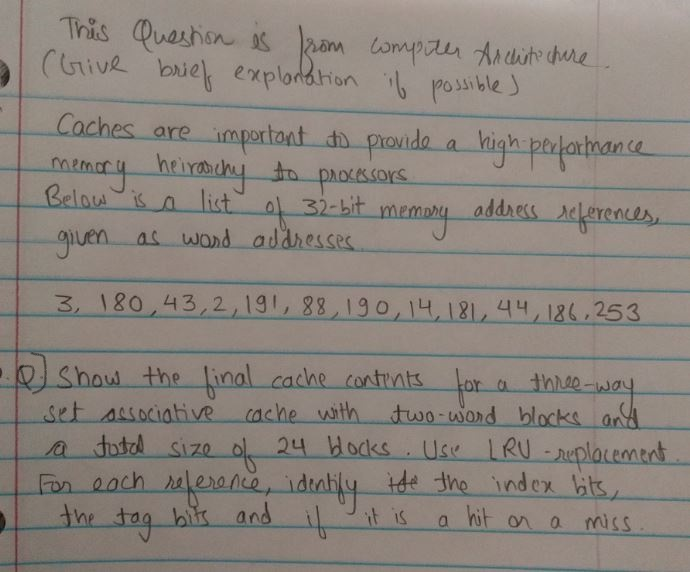 This Question is from computer Architecture.
(Give brief explanation if possible)
Caches are important to provide a high-performance
memory heirarchy to processors.
Below is a list of 32-bit memory address references,
given as word addresses.
3, 180, 43, 2, 191, 88, 190, 14, 181, 44, 186, 253
Q) Show the final cache contents for a three-way
set associative cache with two-word blocks and
a total size of 24 blocks. Use LRU-replacement.
For each reference, identify the the index bits,
the tag bits and if it is a hit or a miss.